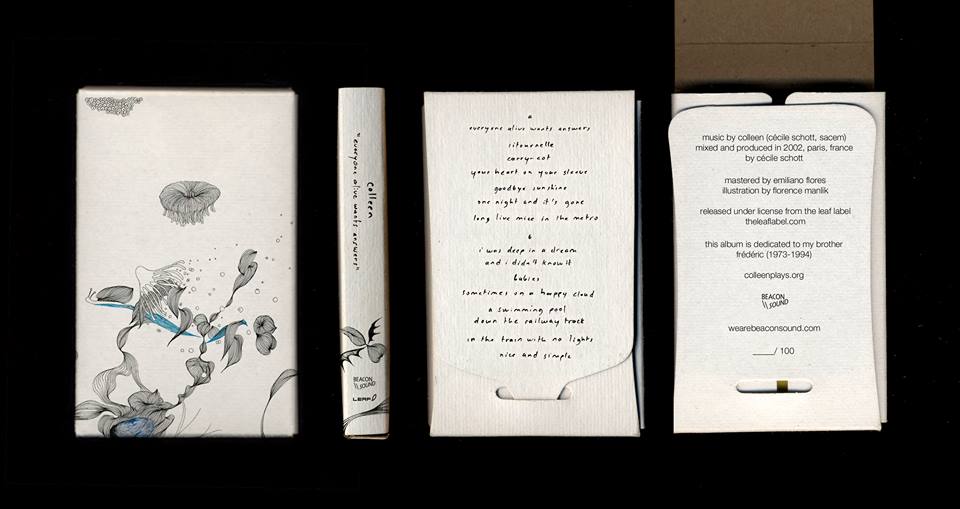 "everyone alive wants answers"
Colleen
BEACON
SOUND
LEAF
a
everyone alive wants answers
ritournelle
carry-cot
your heart on your sleeve
goodbye sunshine
one night and it's gone
long live mice in the metro
b
i was deep in a dream
and i didn't know it
babies
sometimes on a happy cloud
a swimming pool
down the railway track
in the train with no lights
nice and simple
music by colleen (cécile schott, sacem)
mixed and produced in 2002, paris, france
by cécile schott
mastered by emiliano flores
illustration by florence manlik
released under license from the leaf label
theleaflabel.com
this album is dedicated to my brother
frédéric (1973-1994)
colleenplays.org
BEACON
SOUND
wearebeaconsound.com
____/ 100